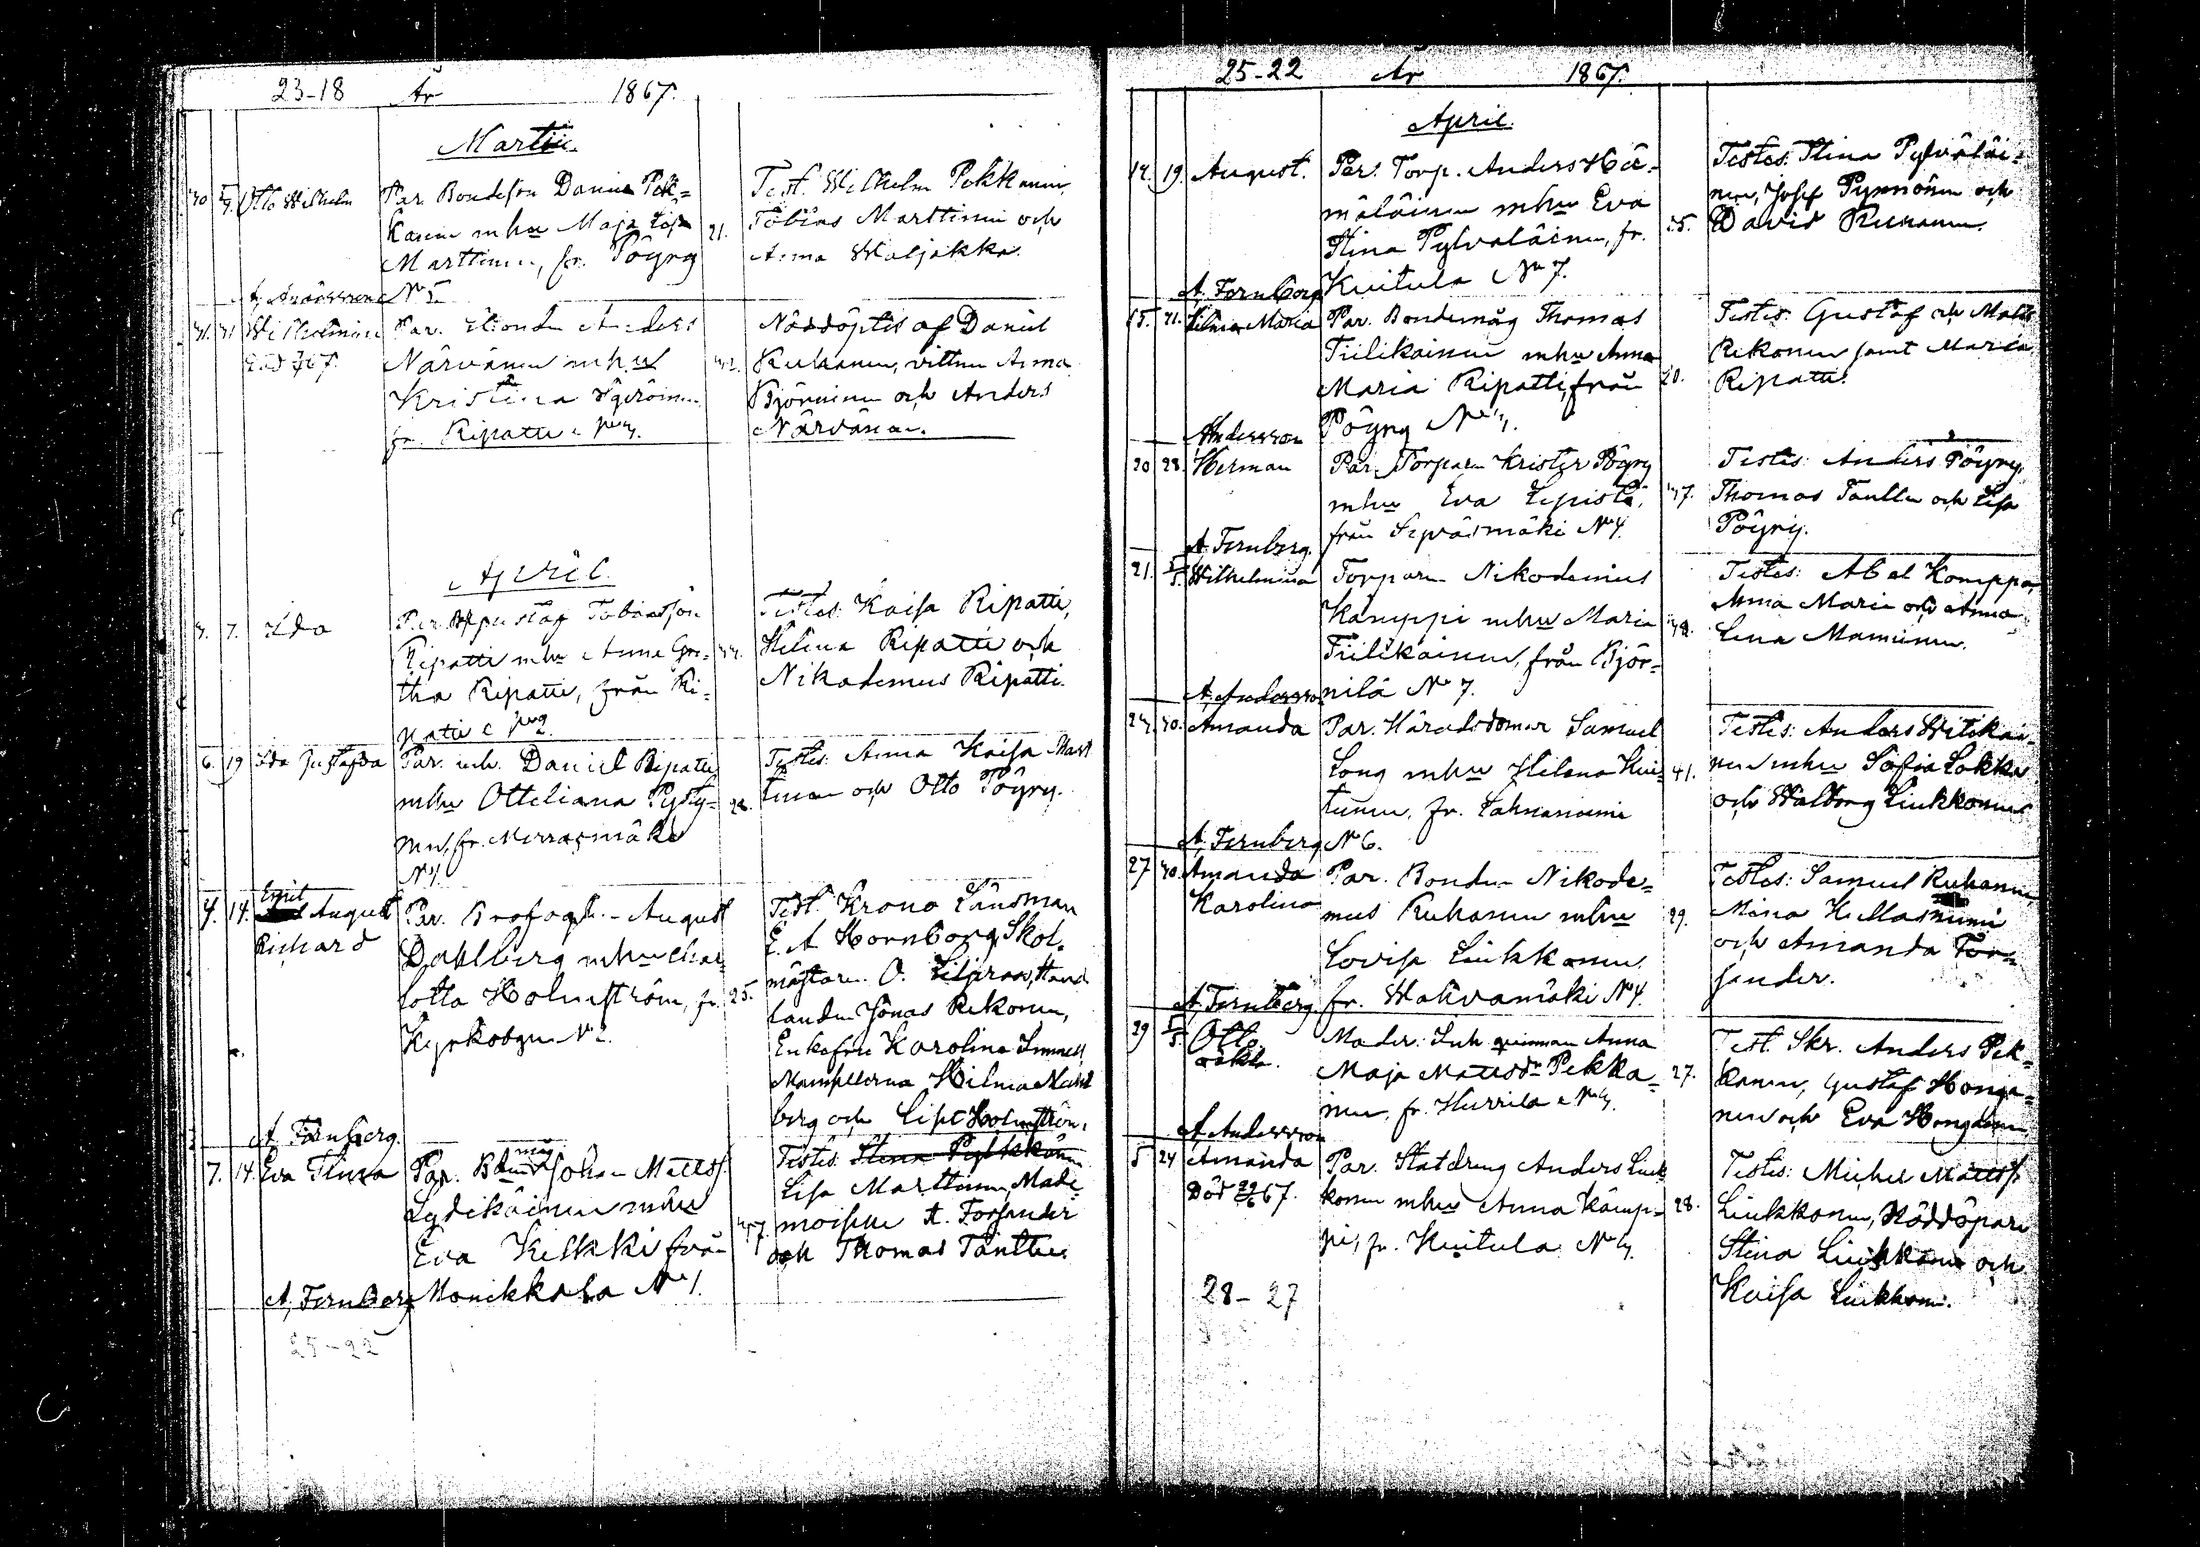 23-18 År 1867.
Martii.
30 Otto Wilhelm Par. Bondeson Daniel Pek=
kanen mhu Maja Lisa
Marttinen, fr. Pöyry
No 5.
21.
Test. Wilhelm Pekkanen
Tobias Marttinen och
Anna Waljakka.
A. Andersson
31. 31 Wilhelmina
Död 67.
Par. Bonden Anders
Närvänen mhu
Kristina
fr. Ripatti
Nöddöptes af Daniel
Ruhanen, vittnen Anna
Björninen och Anders
Närvänen.
April.
3. 7. Ida
Par. Gustaf Tobiasson
Ripatti mhu Anna Gre=
tha Ripatti, från Ri=
patti No 2.
Testes: Kaisa Ripatti,
Helena Ripatti och
Nikodemus Ripatti.
6. 19 Ida Gustafva
Par. Daniel Ripatti
mhu Otteliana Pyöty=
nen, fr.
No 1.
28.
Testes: Anna Kaisa Mart
tinen och Otto Pöyry.
4. 14. Emil August
Richard
Par. August
Dahlberg mhu Char
lotta Holmström, fr.
Kyrkobyn No 2.
25.
Test. Krono Länsman
E. A. Hornborg, Skol=
mästaren O. Hand
landen Jonas Rekonen,
Enkefru Karolina
Mamsellerna Hilma Dahl
berg och Lisi Holmström.
A. Fernberg.
7. 14. Eva Stina
Par. Bondemåg Johan Mattss.
Lydikäinen mhu
Eva Kilkki från
Monikkala No 1.
37.
Testes: Stina
Lisa Marttinen, Made=
moiselle A. Forsander
och Thomas Tanttu
A. Fernberg
25-22
25-22 År 1867.
April.
14. 19. August.
Par. Torp. Anders Hä=
mäläinen mhu Eva
Stina Pylväläinen, fr.
Kuitula No 7.
35.
Testes: Stina Pylväläi=
nen, Josef Pynnönen och
David Ruhanen.
A. Fernberg
15. 21. Hilma Maria
Par. Bondemåg Thomas
Tiilikainen mhu Anna
Maria Ripatti, från
Pöyry No 4.
20.
Testes: Gustaf och Matts
Rekonen samt Maria
Ripatti.
Andersson
20 28. Herman
Par. Torparen Krister Pöyry
mhu Eva Lepistö,
från Seppäsmäki No 4.
37.
Testes: Anders Pöyry,
Thomas Tanttu och Lisa
Pöyry.
A. Fernberg.
21. Wilhelmina
Torparen Nikodemus
Kämppi mhu Maria
Tiilikainen, från Björ=
nilä No 7.
38.
Testes: Abel Kämppi,
Anna Maria och Anna
Lena Mamminen.
A. Andersson
24. 30. Amanda
Par. Häradsdomar Samuel
Long mhu Helena Kui=
tunen, fr. Lahnaniemi
No 6.
41.
Testes: Anders Hiitikäi=
nen mhu Sofia Lokka
och Walborg Liukkonen
A. Fernberg
27 30. Amanda
Karolina
Par. Bonden Nikode=
mus Ruhanen mhu
Lovisa Liukkonen
fr. Wahvamäki No 4.
29.
Testes: Samuel Ruhanen
Mina
och Amanda For=
sander.
A. Fernberg
29 Otto
oäkta.
Moder: Inh. qvinnan Anna
Maja Mattsdr Pekka=
nen, fr. Hurrila No 4.
27.
Test. Skr. Anders Pek=
kanen, Gustaf Honga=
nen och Eva Honganen
A. Andersson
5 24 Amanda
Död 67.
Par. Statdreng Anders Liuk
konen mhu Anna Kämp=
pi, fr. Kuitula No 4.
28.
Testes: Michel Mattss.
Liukkonen, Nöddöpare
Stina Liukkonen och
Kaisa Liukkonen.
28-27